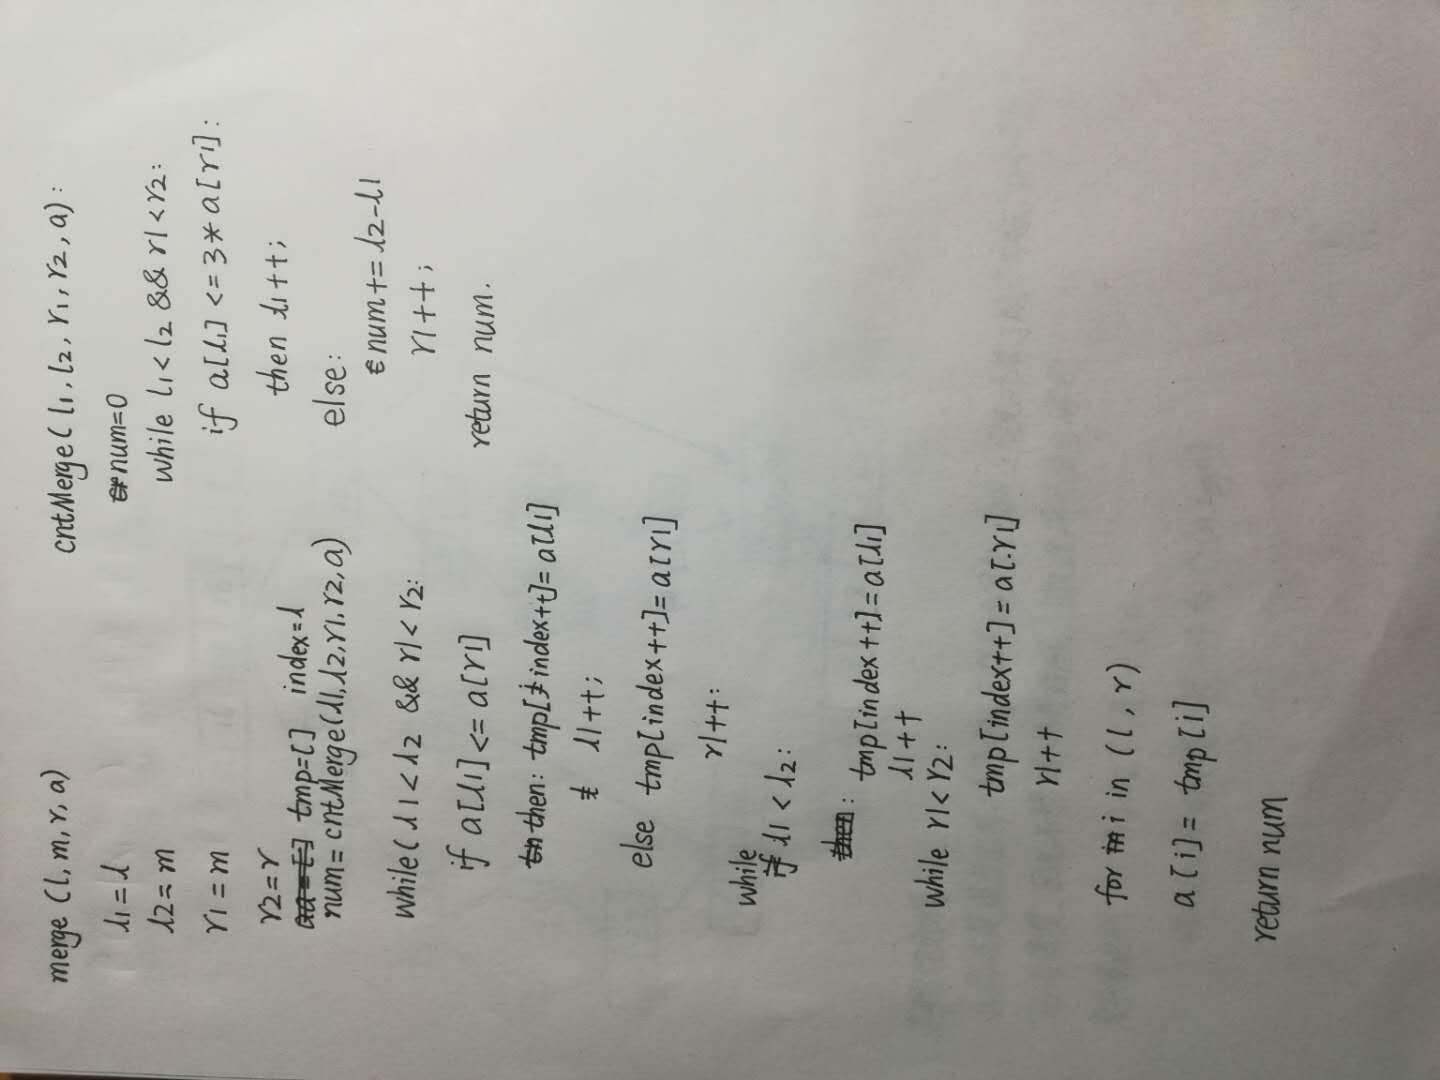 merge (l, m, r, a)
l1 = l
l2 = m
r1 = m
r2 = r
tmp=[] index=l
num = cntMerge(l1, l2, r1, r2, a)
while( l1 < l2 && r1 < r2:
if a[l1] <= a[r1]
then: tmp[index++]= a[l1]
l1++;
else tmp[index++]= a[r1]
r1++:
while l1 < l2:
: tmp[index++] = a[l1]
l1++
while r1< r2:
tmp[index++] = a[r1]
r1++
for i in (l, r)
a[i] = tmp[i]
return num
cntMerge( l1, l2, r1, r2, a):
num=0
while l1 < l2 && r1 < r2:
if a[l1] <= 3 * a[r1]:
then l1++;
else:
num += l2-l1
r1++;
return num.